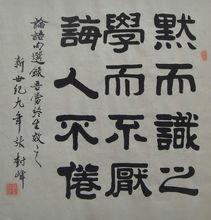 默而識之
學而不厭
誨人不倦
論語句選錄吾當終生效之
新世紀九年張對峰